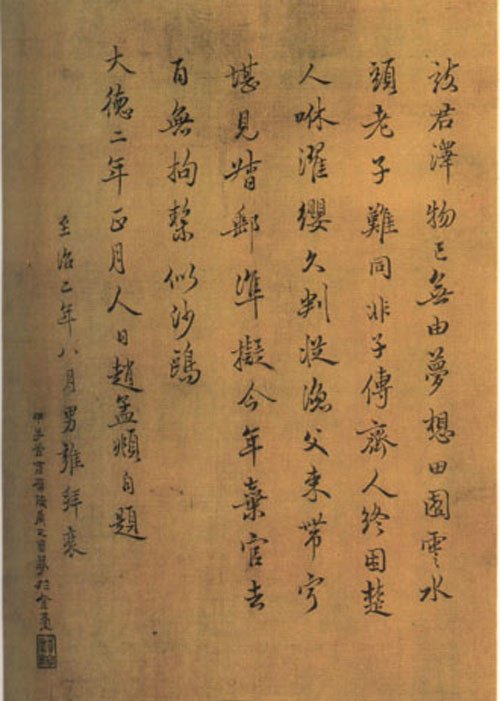 致君澤物已無由夢想田園雲水
頭老子難同非子傳齊人終困楚
人咻濯纓久判從漁父束帶寧
堪見督郵準擬今年棄官去
百無拘繫似沙鷗
大德二年正月人日趙孟頫自題
至治二年八月男雍拜